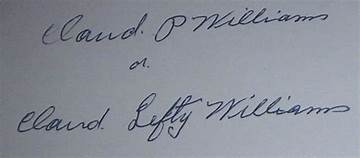 Claud. P Williams
or.
Claud. Lefty Williams